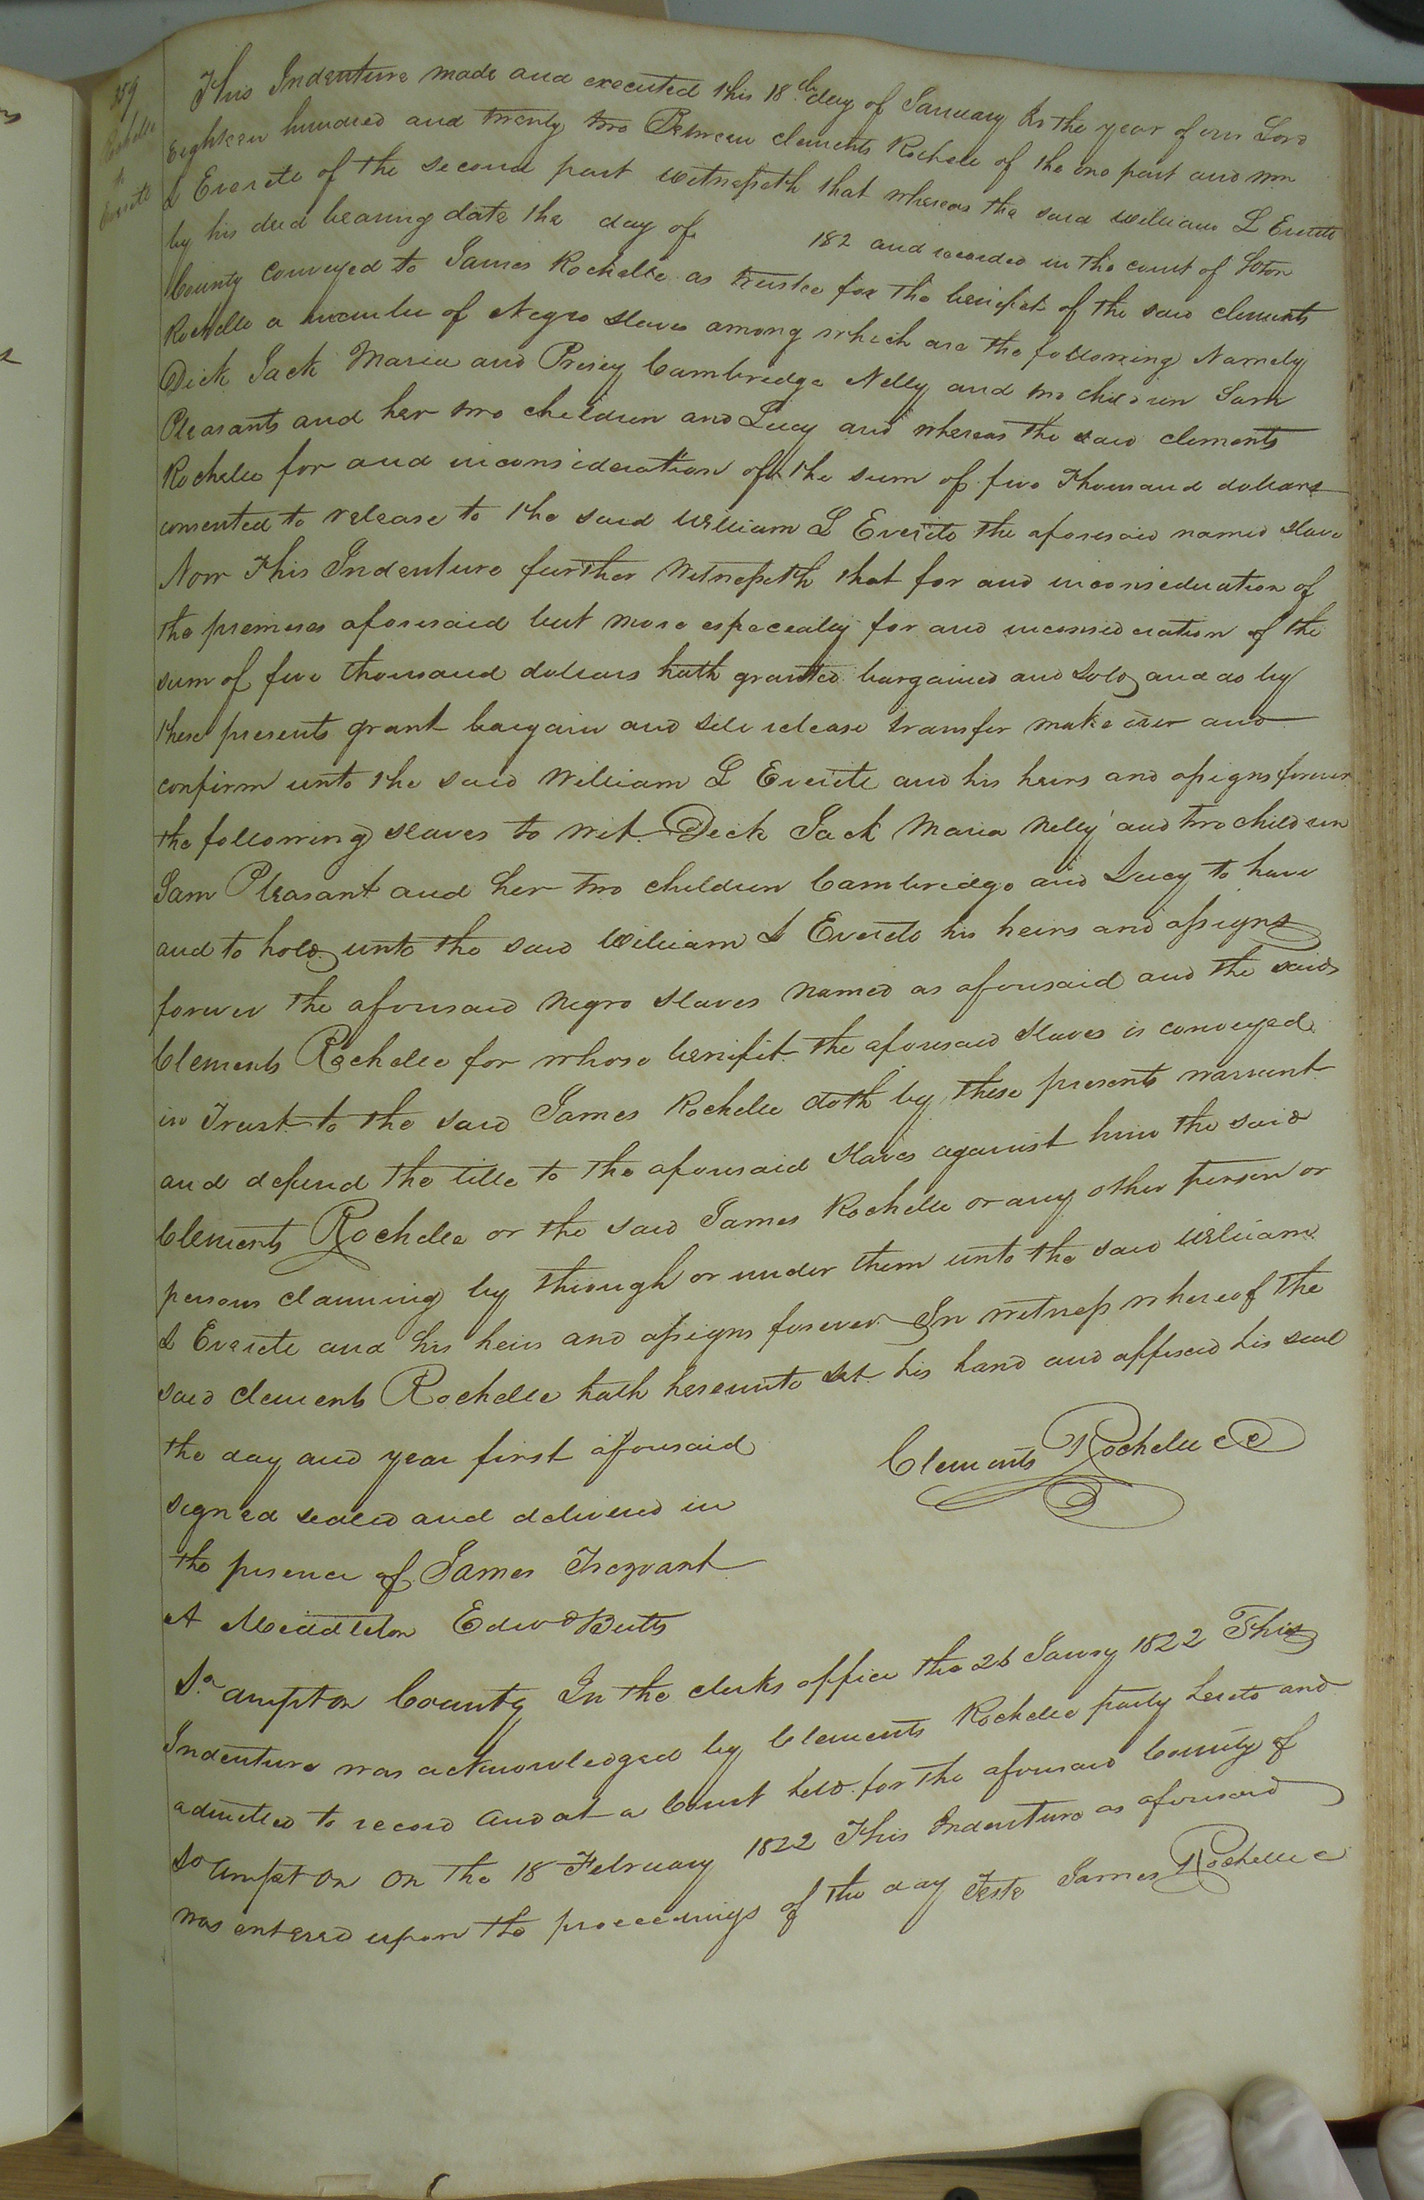 359
Rochelle
to
Everitt
This Indenture made and executed this 18th day of January In the year of our Lord
Eighteen hundred and twenty two Between Clements Rochelle of the one part and Wm
L Everette of the second part witnesseth that whereas the said William L Everette
by his deed bearing date the day of 182 and recorded in the court of Soton
County conveyed to James Rochelle as trustee for the benefit of the said Clements
Rochelle a number of Negro slaves among which are the following Namely
Dick Jack Maria and Prissy Cambridge Nelly and two children Sam
Pleasants and her two children and Lucy and whereas the said Clements
Rochelle for and in consideration of the sum of five Thousand dollars
consented to release to the said William L Everette the aforesaid named slave
Now This Indenture further Witnesseth that for and in consideration of
the premises aforesaid but more especially for and in consideration of the
sum of five thousand dollars hath granted bargained and sold and do by
these presents grant bargain and sell release transfer make over and
confirm unto the said William L Everette and his heirs and assigns forever
the following slaves to wit. Dick Jack Maria Nelly and two children
Sam Pleasant and her two children Cambridge and Lucy to have
and to hold unto the said William L Everette his heirs and assigns
forever the aforesaid negro slaves named as aforesaid and the said
Clements Rochelle for whose benifit the aforesaid slaves is conveyed
in Trust to the said James Rochelle doth by these presents warrant
and defend the title to the aforesaid slaves against him the said
Clements Rochelle or the said James Rochelle or any other person or
persons claiming by through or under them unto the said William
L Everette and his heirs and assigns forever In witness whereof the
said Clements Rochelle hath hereunto set his hand and affixed his seal
the day and year first aforesaid
Clements Rochelle
signed sealed and delivered in
the presence of James Trezvant
A Middleton Edwd Butts
So ampton County In the clerks office the 26 Janry 1822 This
Indenture was acknowledged by Clements Rochelle party hereto and
admitted to record and at a Court held for the aforesaid County of
So ampton on the 18 February 1822 This Indenture as aforesaid
was entered upon the proceedings of the day Teste James Rochelle c